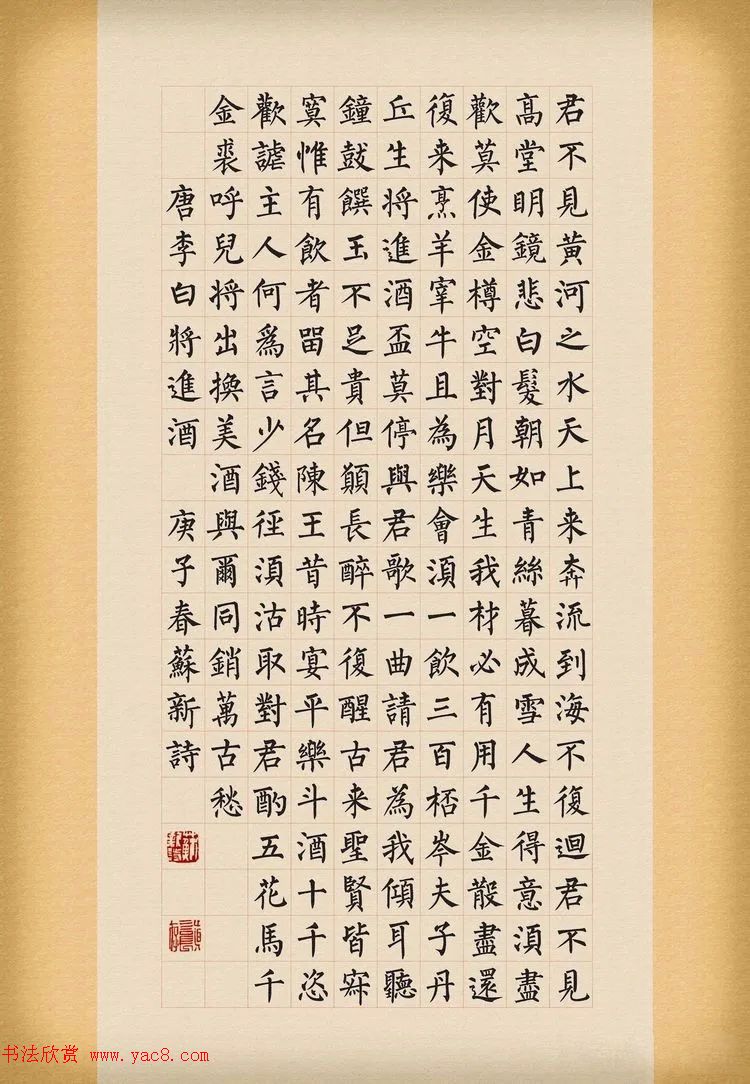 君不見黃河之水天上来奔流到海不復迴君不見
髙堂眀鏡悲白髮朝如青絲暮成雪人生得意湏盡
歡莫使金樽空對月天生我材必有用千金散盡還
復来烹羊宰牛且為樂會湏一飲三百桮岑夫子丹
丘生將進酒盃莫停與君歌一曲請君為我傾耳聽
鐘鼓饌玉不足貴但願長醉不復醒古来聖賢皆寂
寞惟有飲者留其名陳王昔時宴平樂斗酒十千恣
歡謔主人何爲言少錢徑湏沽取對君酌五花馬千
金裘呼兒將出換美酒與爾同銷萬古愁
唐李白將進酒 庚子春蘇新詩
书法欣赏 www.yac8.com